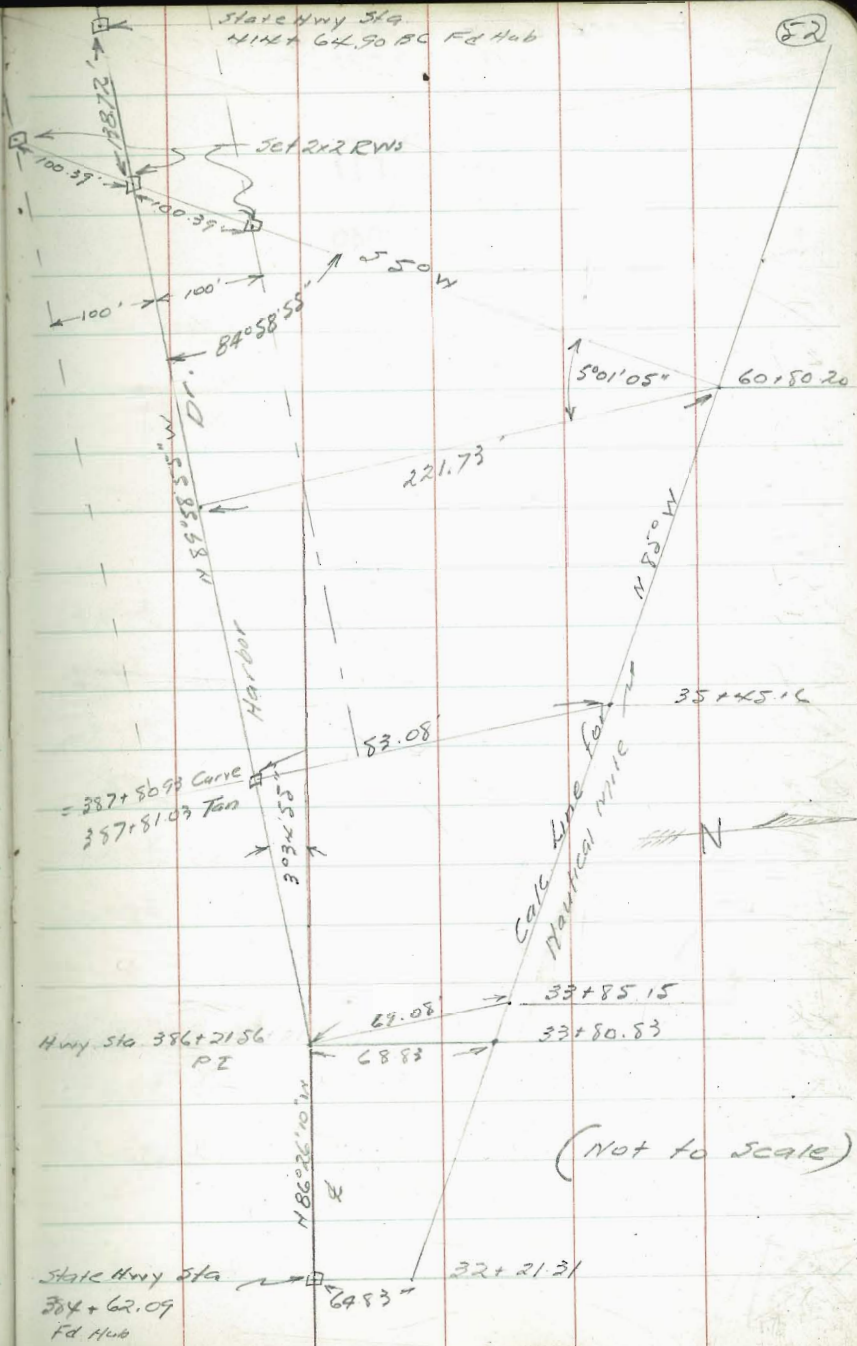 State Hwy Sta.
414+64.90 BC Fd Hub
52
138.72'
Set 2x2 RWs
100.39'
100.39'
S 5° W
100'
100'
84°58'55"
5°01'05"
60+80.20
Dr.
221.73'
N 89°58'55" W
N 85° W
Harbor
35+45.16
83.08'
= 387+80.93 Curve
387+81.03 Tan
3°34'55"
N
Calc Line For
Nautical Mile
69.08'
33+85.15
Hwy Sta. 386+21.56
PI
68.83
33+80.83
N 86°26'10" W
(Not to Scale)
State Hwy Sta
384+62.09
Fd Hub
64.83"
32+21.31